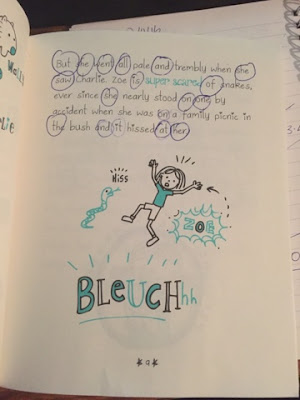 But she went all pale and trembly when she
saw Charlie. Zoe is super scared of snakes,
ever since she nearly stood on one by
accident when she was on a family picnic in
the bush and it hissed at her.
HISS
ZOE
BLEUCHhh